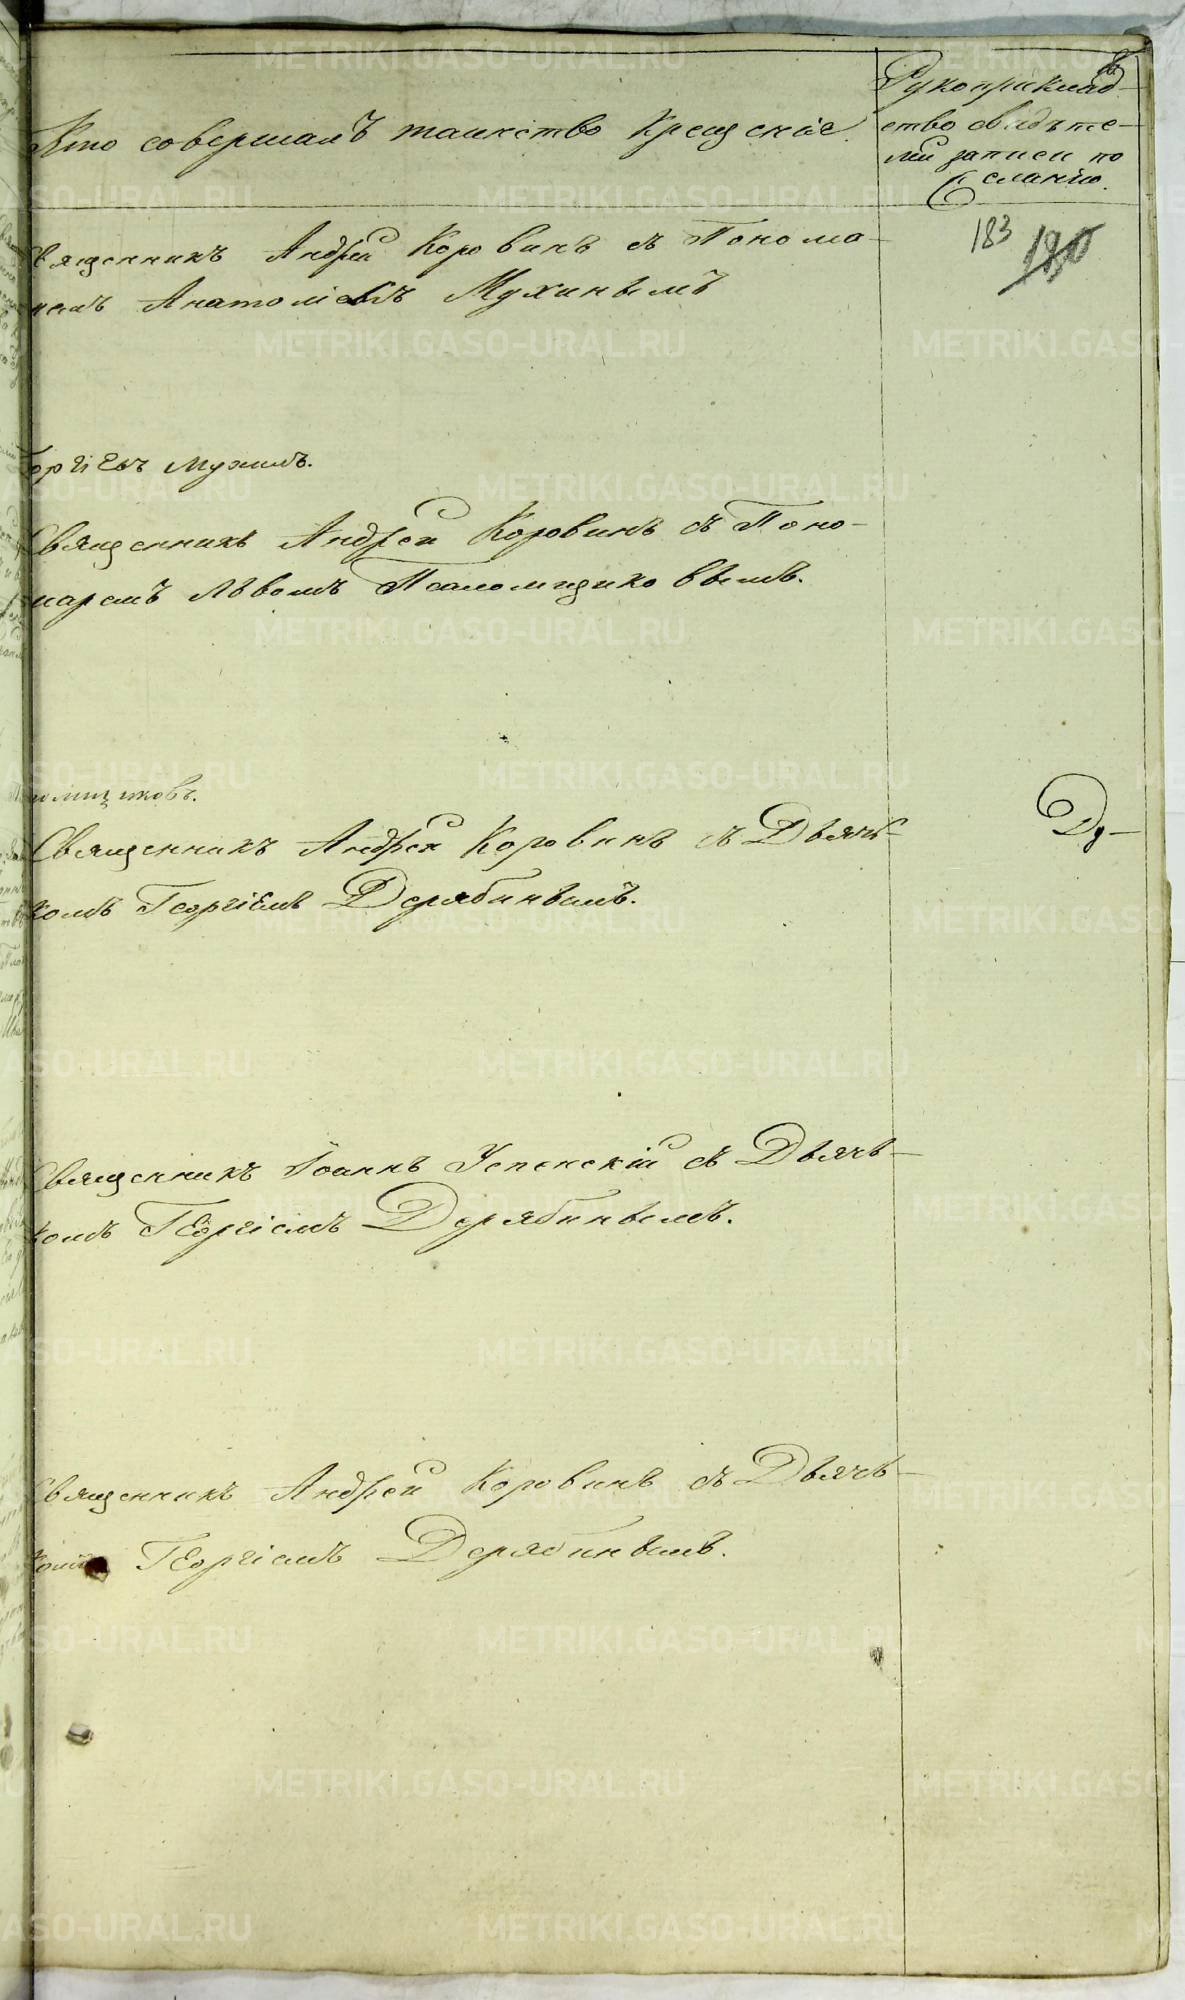 Кто совершалъ таинство Крещенiе.
Рукоприклад-
ство свидѣте-
лей записи по
желанiю.
183 180
Священникъ Андрей Коровинъ съ Понома-
ремъ Анатолiемъ Мухинымъ
Георгiевъ Мухинъ.
Священникъ Андрей Коровинъ съ Поно-
маремъ Львомъ Псаломщиковымъ.
ломщиковъ.
Священникъ Андрей Коровинъ съ Дьяч-
комъ Георгiемъ Дерябинымъ.
Ду-
Священникъ Iоаннъ Успенскiй съ Дьячь-
комъ Георгiемъ Дерябинымъ.
Священникъ Андрей Коровинъ съ Дьячь-
комъ Георгiемъ Дерябинымъ.
METRIKI.GASO-URAL.RU